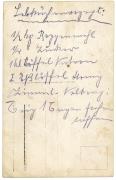 Lebkuchenrezept.
1/2 kg Roggenmehl
1/4 Zucker
1 Löffel Natron
2 Eßlöffel Honig
Zimmet, Nelken,
Teig 1 Tag